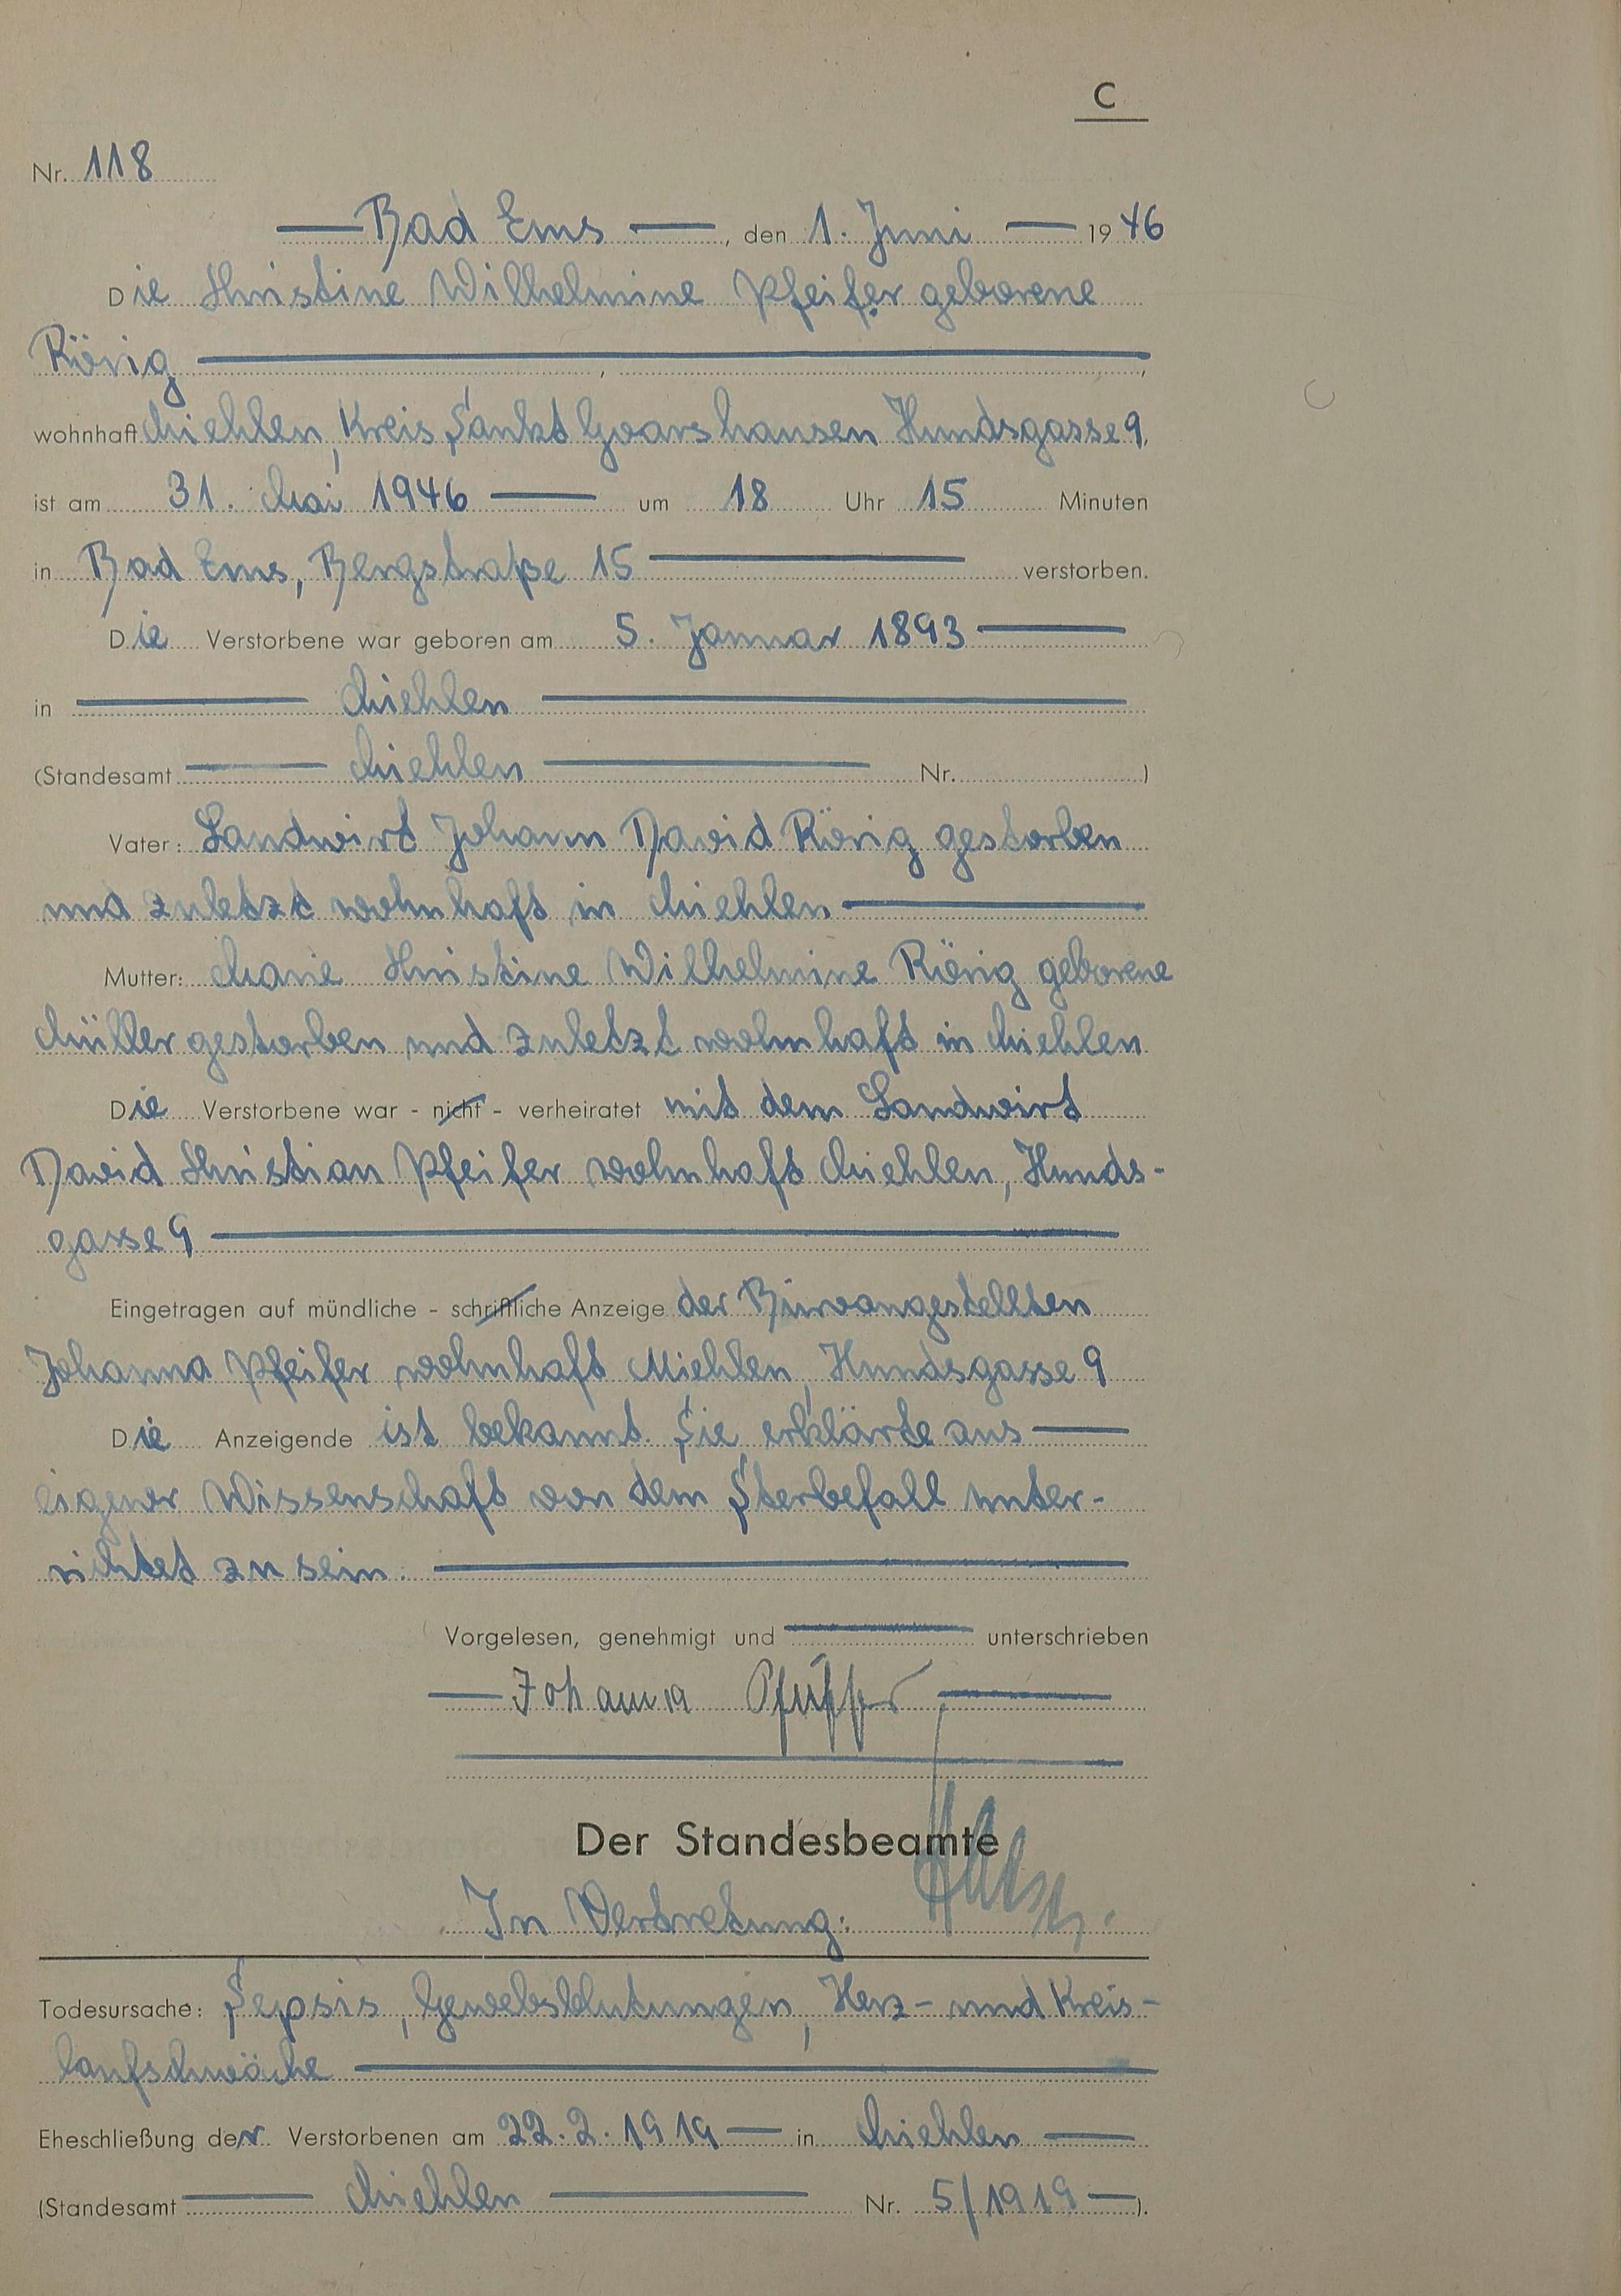 C
Nr. 118
Bad Ems, den 1. Juni 1946
Die Christine Wilhelmine Pfeifer geborene
Rörig
wohnhaft Miehlen, Kreis Sankt Goarshausen Hundsgasse 9,
ist am 31. Mai 1946 um 18 Uhr 15 Minuten
in Bad Ems, Bergstraße 15 verstorben.
Die Verstorbene war geboren am 5. Januar 1893
in Miehlen
(Standesamt Miehlen Nr. )
Vater: Landwirt Johann David Rörig gestorben
und zuletzt wohnhaft in Miehlen
Mutter: Marie Christine Wilhelmine Rörig geborene
Müller gestorben und zuletzt wohnhaft in Miehlen
Die Verstorbene war - nicht - verheiratet mit dem Landwirt
David Christian Pfeifer wohnhaft Miehlen, Hunds-
gasse 9
Eingetragen auf mündliche - schriftliche Anzeige der Büroangestellten
Johanna Pfeifer wohnhaft Miehlen, Hundsgasse 9
Die Anzeigende ist bekannt. Sie erklärte aus
eigener Wissenschaft von dem Sterbefall unter-
richtet zu sein.
Vorgelesen, genehmigt und unterschrieben
Johanna Pfeiffer
Der Standesbeamte
In Vertretung:
Todesursache: Sepsis, Gewebsblutungen, Herz- und Kreis-
laufschwäche
Eheschließung der Verstorbenen am 22.2.1919 in Miehlen
(Standesamt Miehlen Nr. 5/1919).